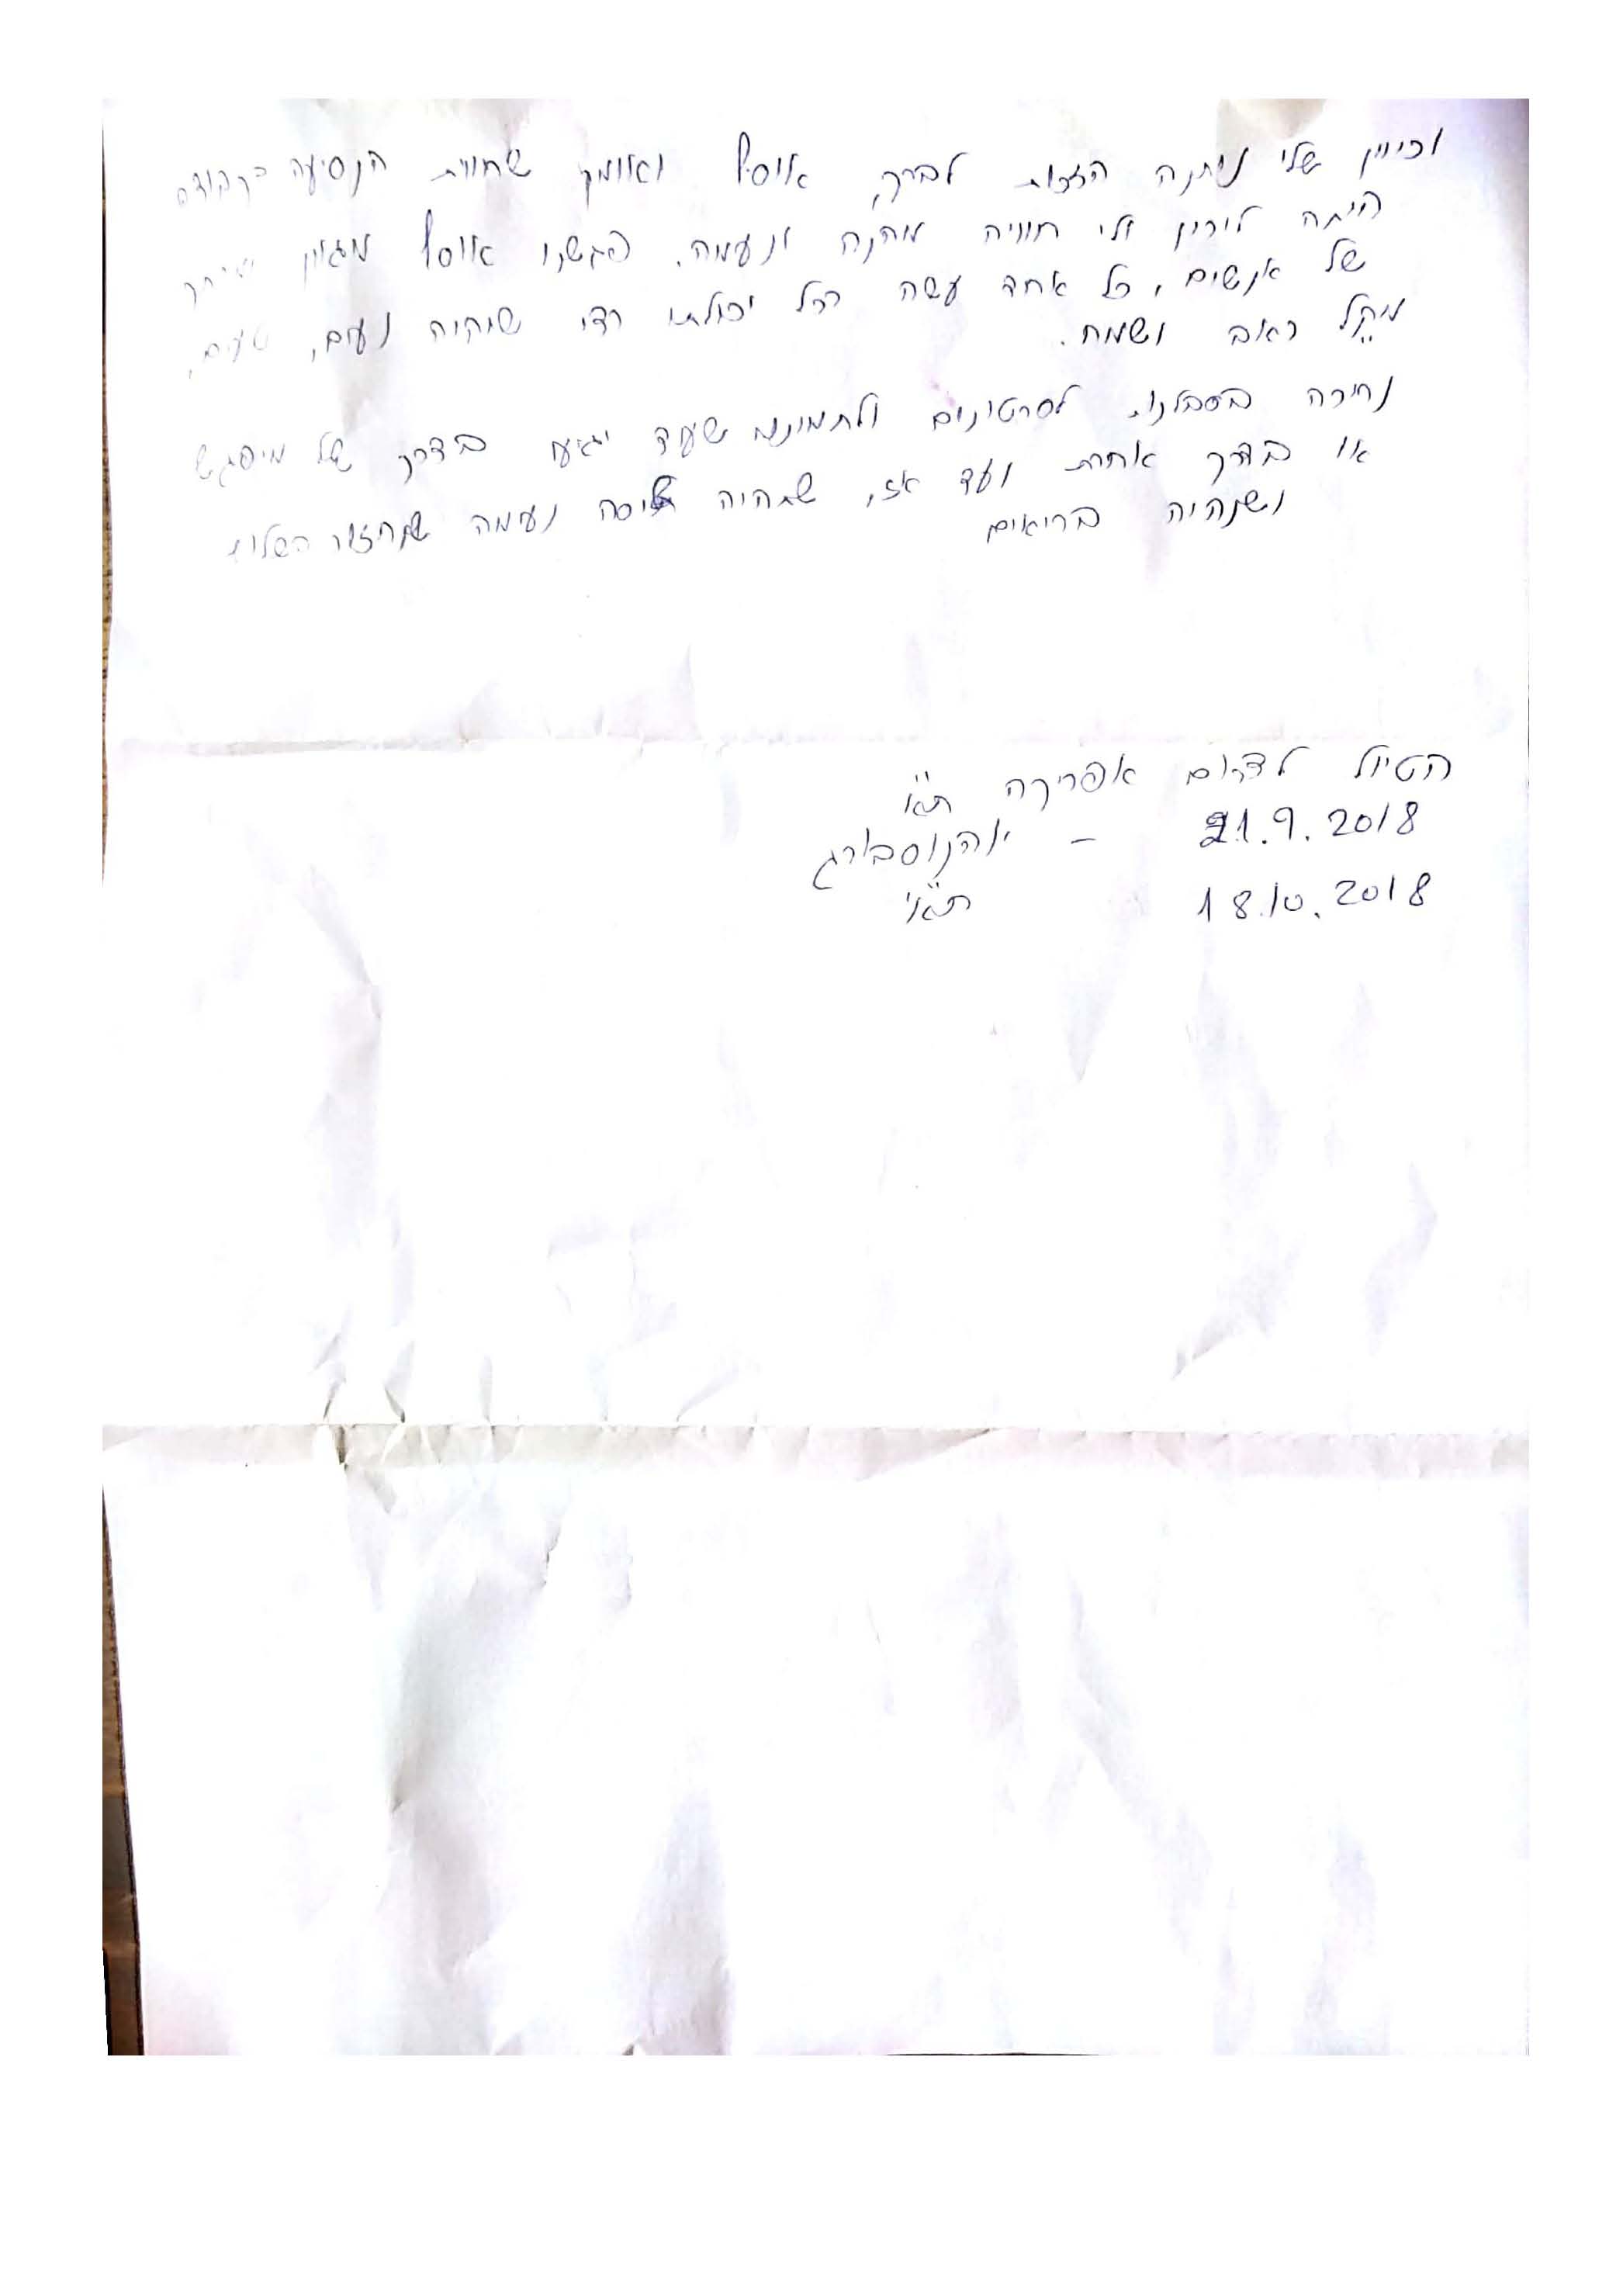 וכיוון שלי ניתנה הזכות לברך, אוסיף ואומר שחווית הנסיעה
היתה לירין ולי חוויה מהנה ונעימה. פגשנו אוסף מגוון
של אנשים, כל אחד עשה ככל יכולתו כדי שיהיה נעים, טעים,
מיקל ראוב ושמח.
נחכה בסבלנות לסרטונים ולתמונות שעוד יגיעו בדרך של מיפגש
או בדרך אחרת ועד אז, שתהיה טיסה נעימה שנחזור השלות
ושנהיה בריאים
הטיול לדרום אפריקה
תא"ו
21.9.2018 – יוהנוסבורג
18.10.2018